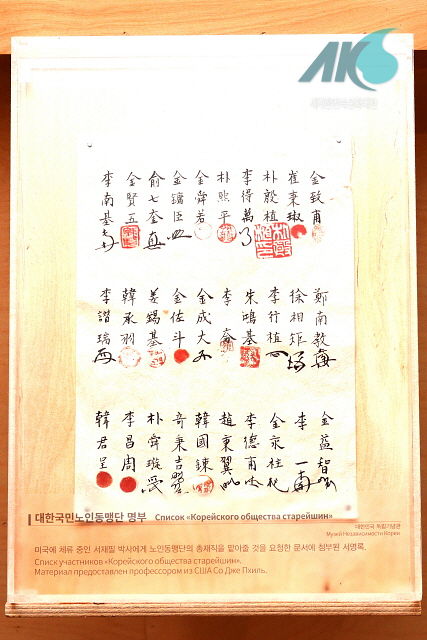 AKS
金致甫
崔秉琡
朴殷植
李得萬
朴熙平
金舜若
金鏞臣
俞七奎
金賢五
李南基
鄭南教
徐相矩
李行植
朱鴻基
李
金成大
金佐斗
姜錫基
韓承羽
李譜瑞
金益智
李一
金永柱
李德甫
趙東翼
韓國鍊
奇秉吉
朴舜璇
李昌周
韓君呈
대한국민노인동맹단 명부 Список «Корейского общества старейшин»
대한민국 독립기념관
Музей Независимости Кореи
미국에 체류 중인 서재필 박사에게 노인동맹단의 총재직을 맡아줄 것을 요청한 문서에 첨부된 서명록.
Список участников «Корейского общества старейшин».
Материал предоставлен профессором из США Со Дже Пхиль.